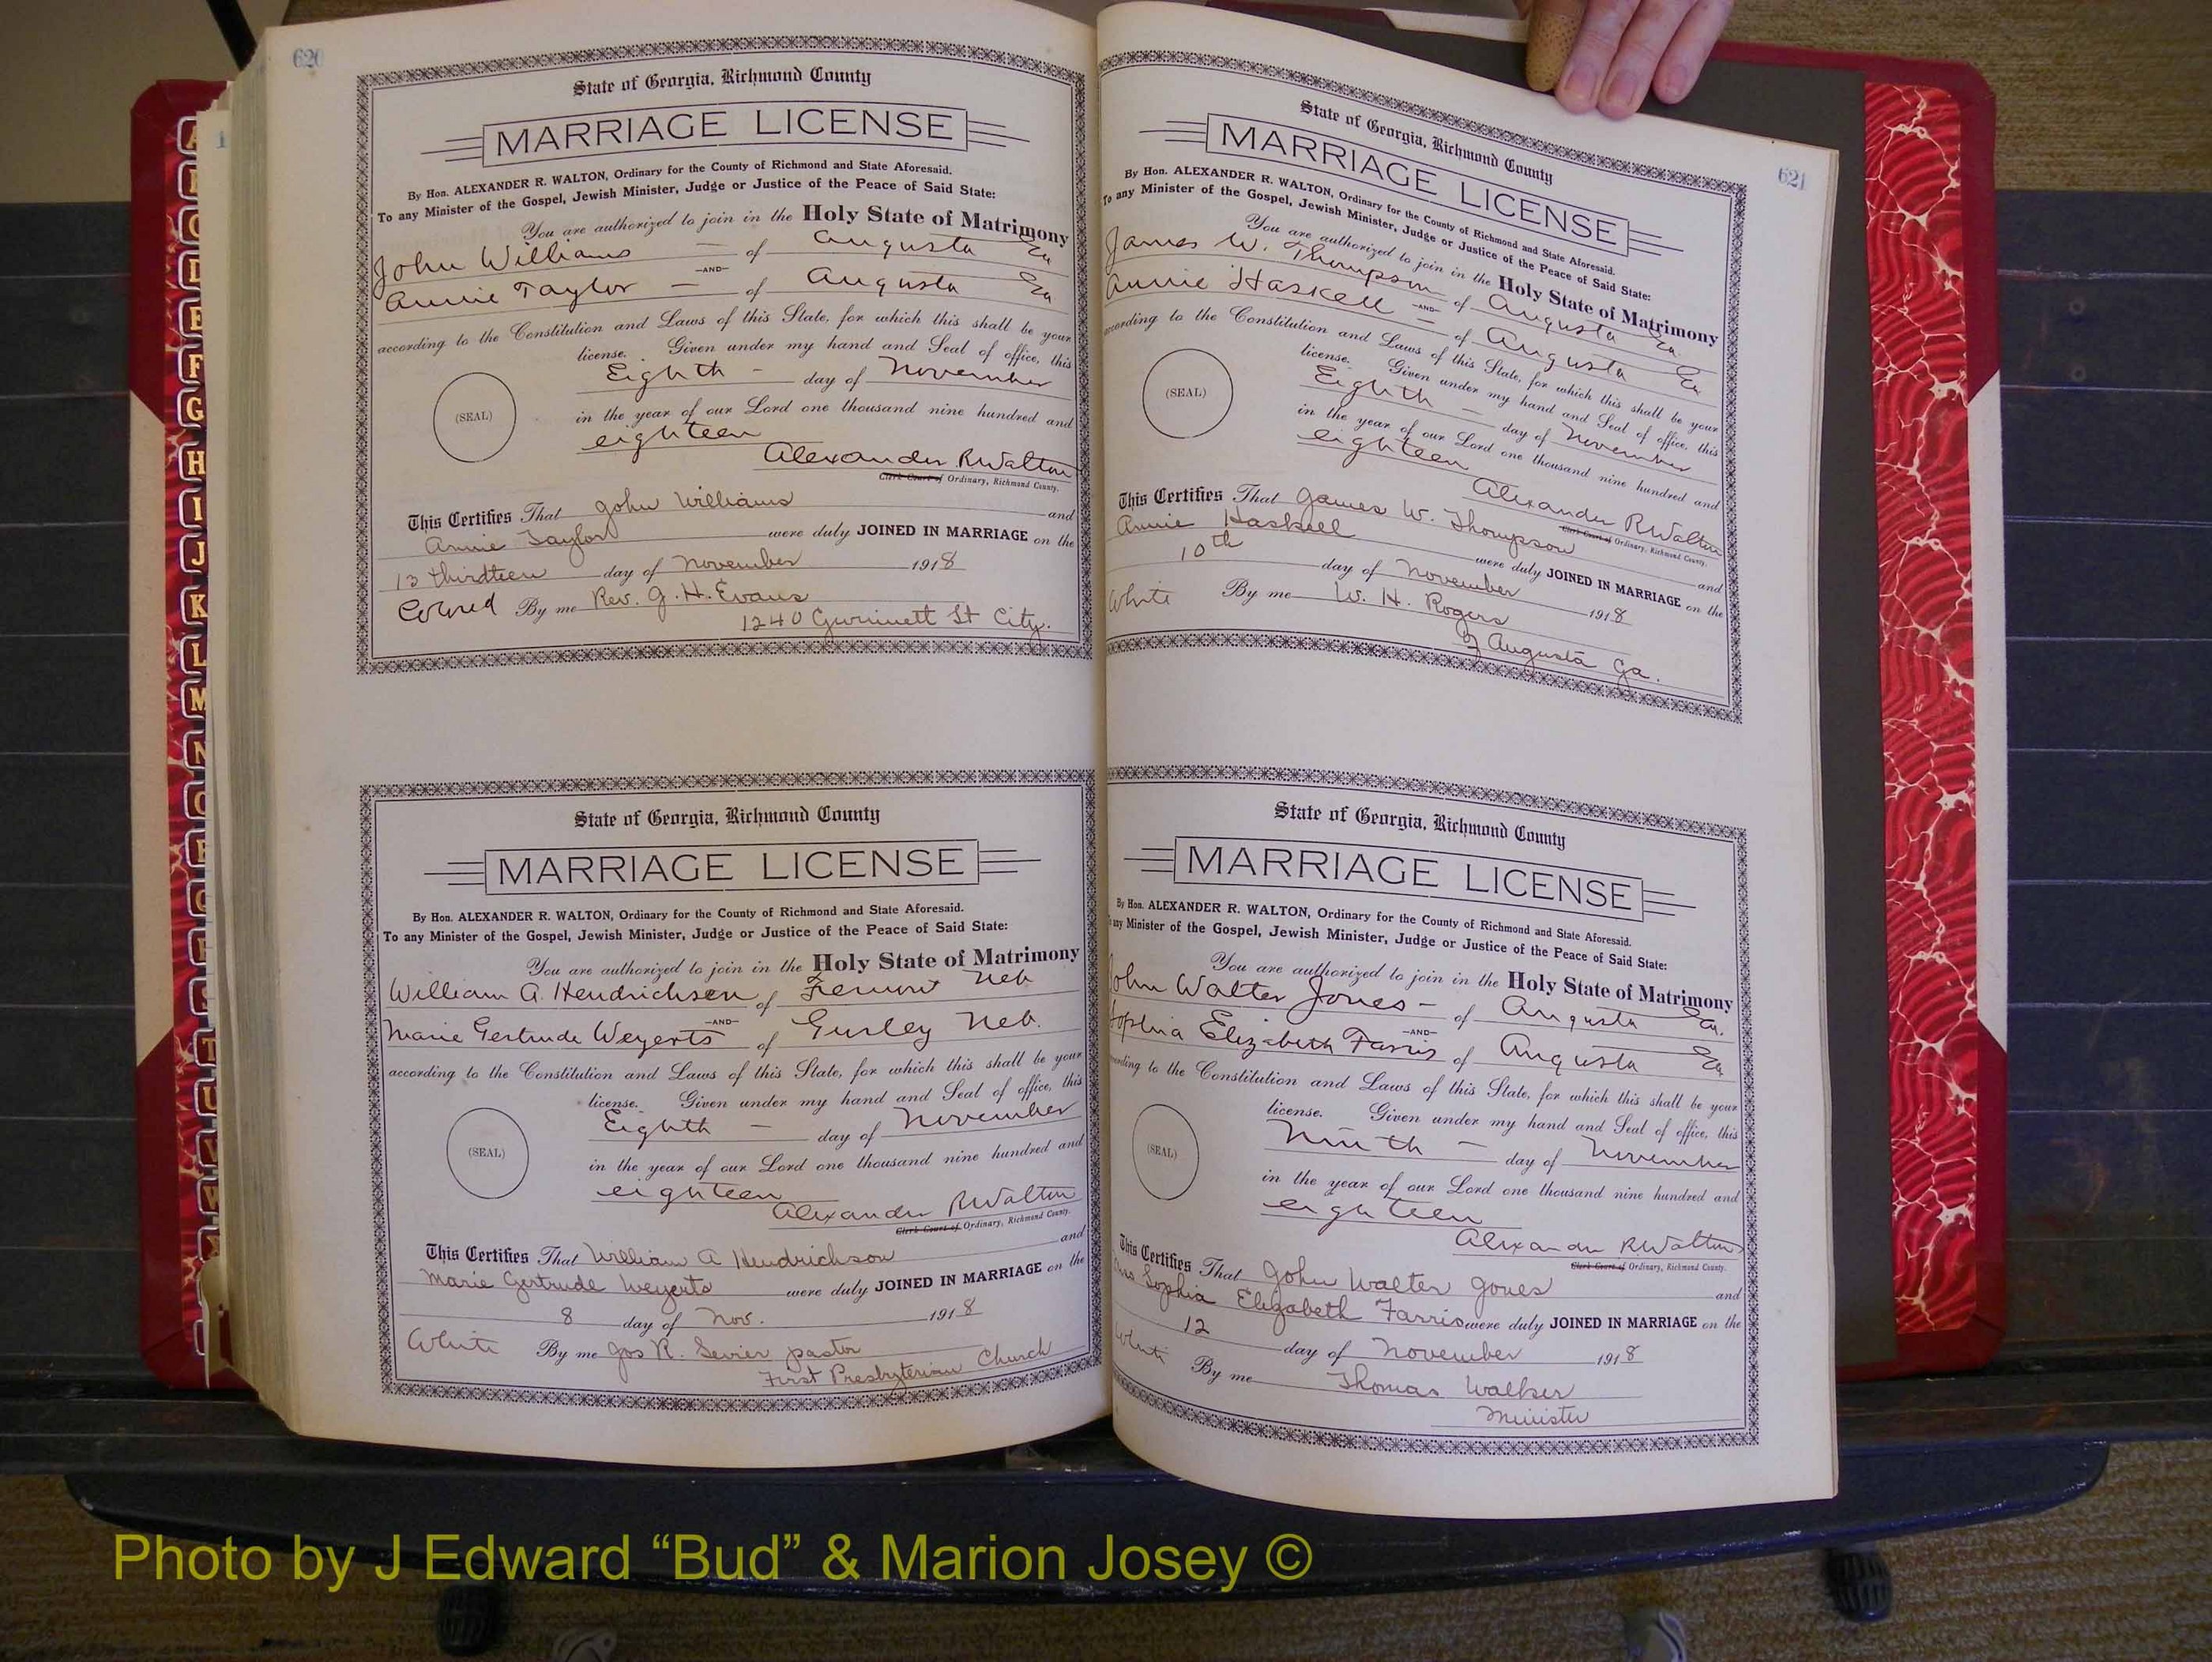 620
State of Georgia, Richmond County
MARRIAGE LICENSE
By Hon. ALEXANDER R. WALTON, Ordinary for the County of Richmond and State Aforesaid.
To any Minister of the Gospel, Jewish Minister, Judge or Justice of the Peace of Said State:
You are authorized to join in the Holy State of Matrimony
John Williams — of Augusta Ga
—AND—
Annie Taylor — of Augusta Ga
according to the Constitution and Laws of this State, for which this shall be your
license. Given under my hand and Seal of office, this
Eighth - day of November
(SEAL)
in the year of our Lord one thousand nine hundred and
eighteen
Alexander R Walton
Clerk Court of Ordinary, Richmond County.
This Certifies That John Williams and
Annie Taylor were duly JOINED IN MARRIAGE on the
13 thirdteen day of November 1918
Colored By me Rev. G. H. Evans
1240 Gwinnett St City.
State of Georgia, Richmond County
MARRIAGE LICENSE
By Hon. ALEXANDER R. WALTON, Ordinary for the County of Richmond and State Aforesaid.
To any Minister of the Gospel, Jewish Minister, Judge or Justice of the Peace of Said State:
You are authorized to join in the Holy State of Matrimony
William A. Hendrichsen of Fremont Neb
—AND—
Marie Gertrude Weyerts of Gurley Neb.
according to the Constitution and Laws of this State, for which this shall be your
license. Given under my hand and Seal of office, this
Eighth — day of November
(SEAL)
in the year of our Lord one thousand nine hundred and
eighteen
Alexander R Walton
Clerk Court of Ordinary, Richmond County.
This Certifies That William A Hendrichson and
Marie Gertrude Weyerts were duly JOINED IN MARRIAGE on the
8 day of Nov. 1918
White By me Jos R. Sevier pastor
First Presbyterian Church
621
State of Georgia, Richmond County
MARRIAGE LICENSE
By Hon. ALEXANDER R. WALTON, Ordinary for the County of Richmond and State Aforesaid.
To any Minister of the Gospel, Jewish Minister, Judge or Justice of the Peace of Said State:
You are authorized to join in the Holy State of Matrimony
James W. Thompson of Augusta Ga.
—AND—
Annie Haskell — of Augusta Ga
according to the Constitution and Laws of this State, for which this shall be your
license. Given under my hand and Seal of office, this
Eighth — day of November
(SEAL)
in the year of our Lord one thousand nine hundred and
eighteen
Alexander R Walton
Clerk Court of Ordinary, Richmond County.
This Certifies That James W. Thompson and
Annie Haskell were duly JOINED IN MARRIAGE on the
10th day of November 1918
White By me W. H. Rogers
of Augusta Ga.
State of Georgia, Richmond County
MARRIAGE LICENSE
By Hon. ALEXANDER R. WALTON, Ordinary for the County of Richmond and State Aforesaid.
any Minister of the Gospel, Jewish Minister, Judge or Justice of the Peace of Said State:
You are authorized to join in the Holy State of Matrimony
John Walter Jones — of Augusta Ga.
—AND—
Sophia Elizabeth Farris of Augusta Ga
according to the Constitution and Laws of this State, for which this shall be your
license. Given under my hand and Seal of office, this
Ninth — day of November
(SEAL)
in the year of our Lord one thousand nine hundred and
eighteen
Alexander R. Walton
Clerk Court of Ordinary, Richmond County.
This Certifies That John Walter Jones and
Miss Sophia Elizabeth Farris were duly JOINED IN MARRIAGE on the
12 day of November 1918
White By me Thomas Walker
Minister
F
G
H
I
J
K
L
M
N
Photo by J Edward “Bud” & Marion Josey ©